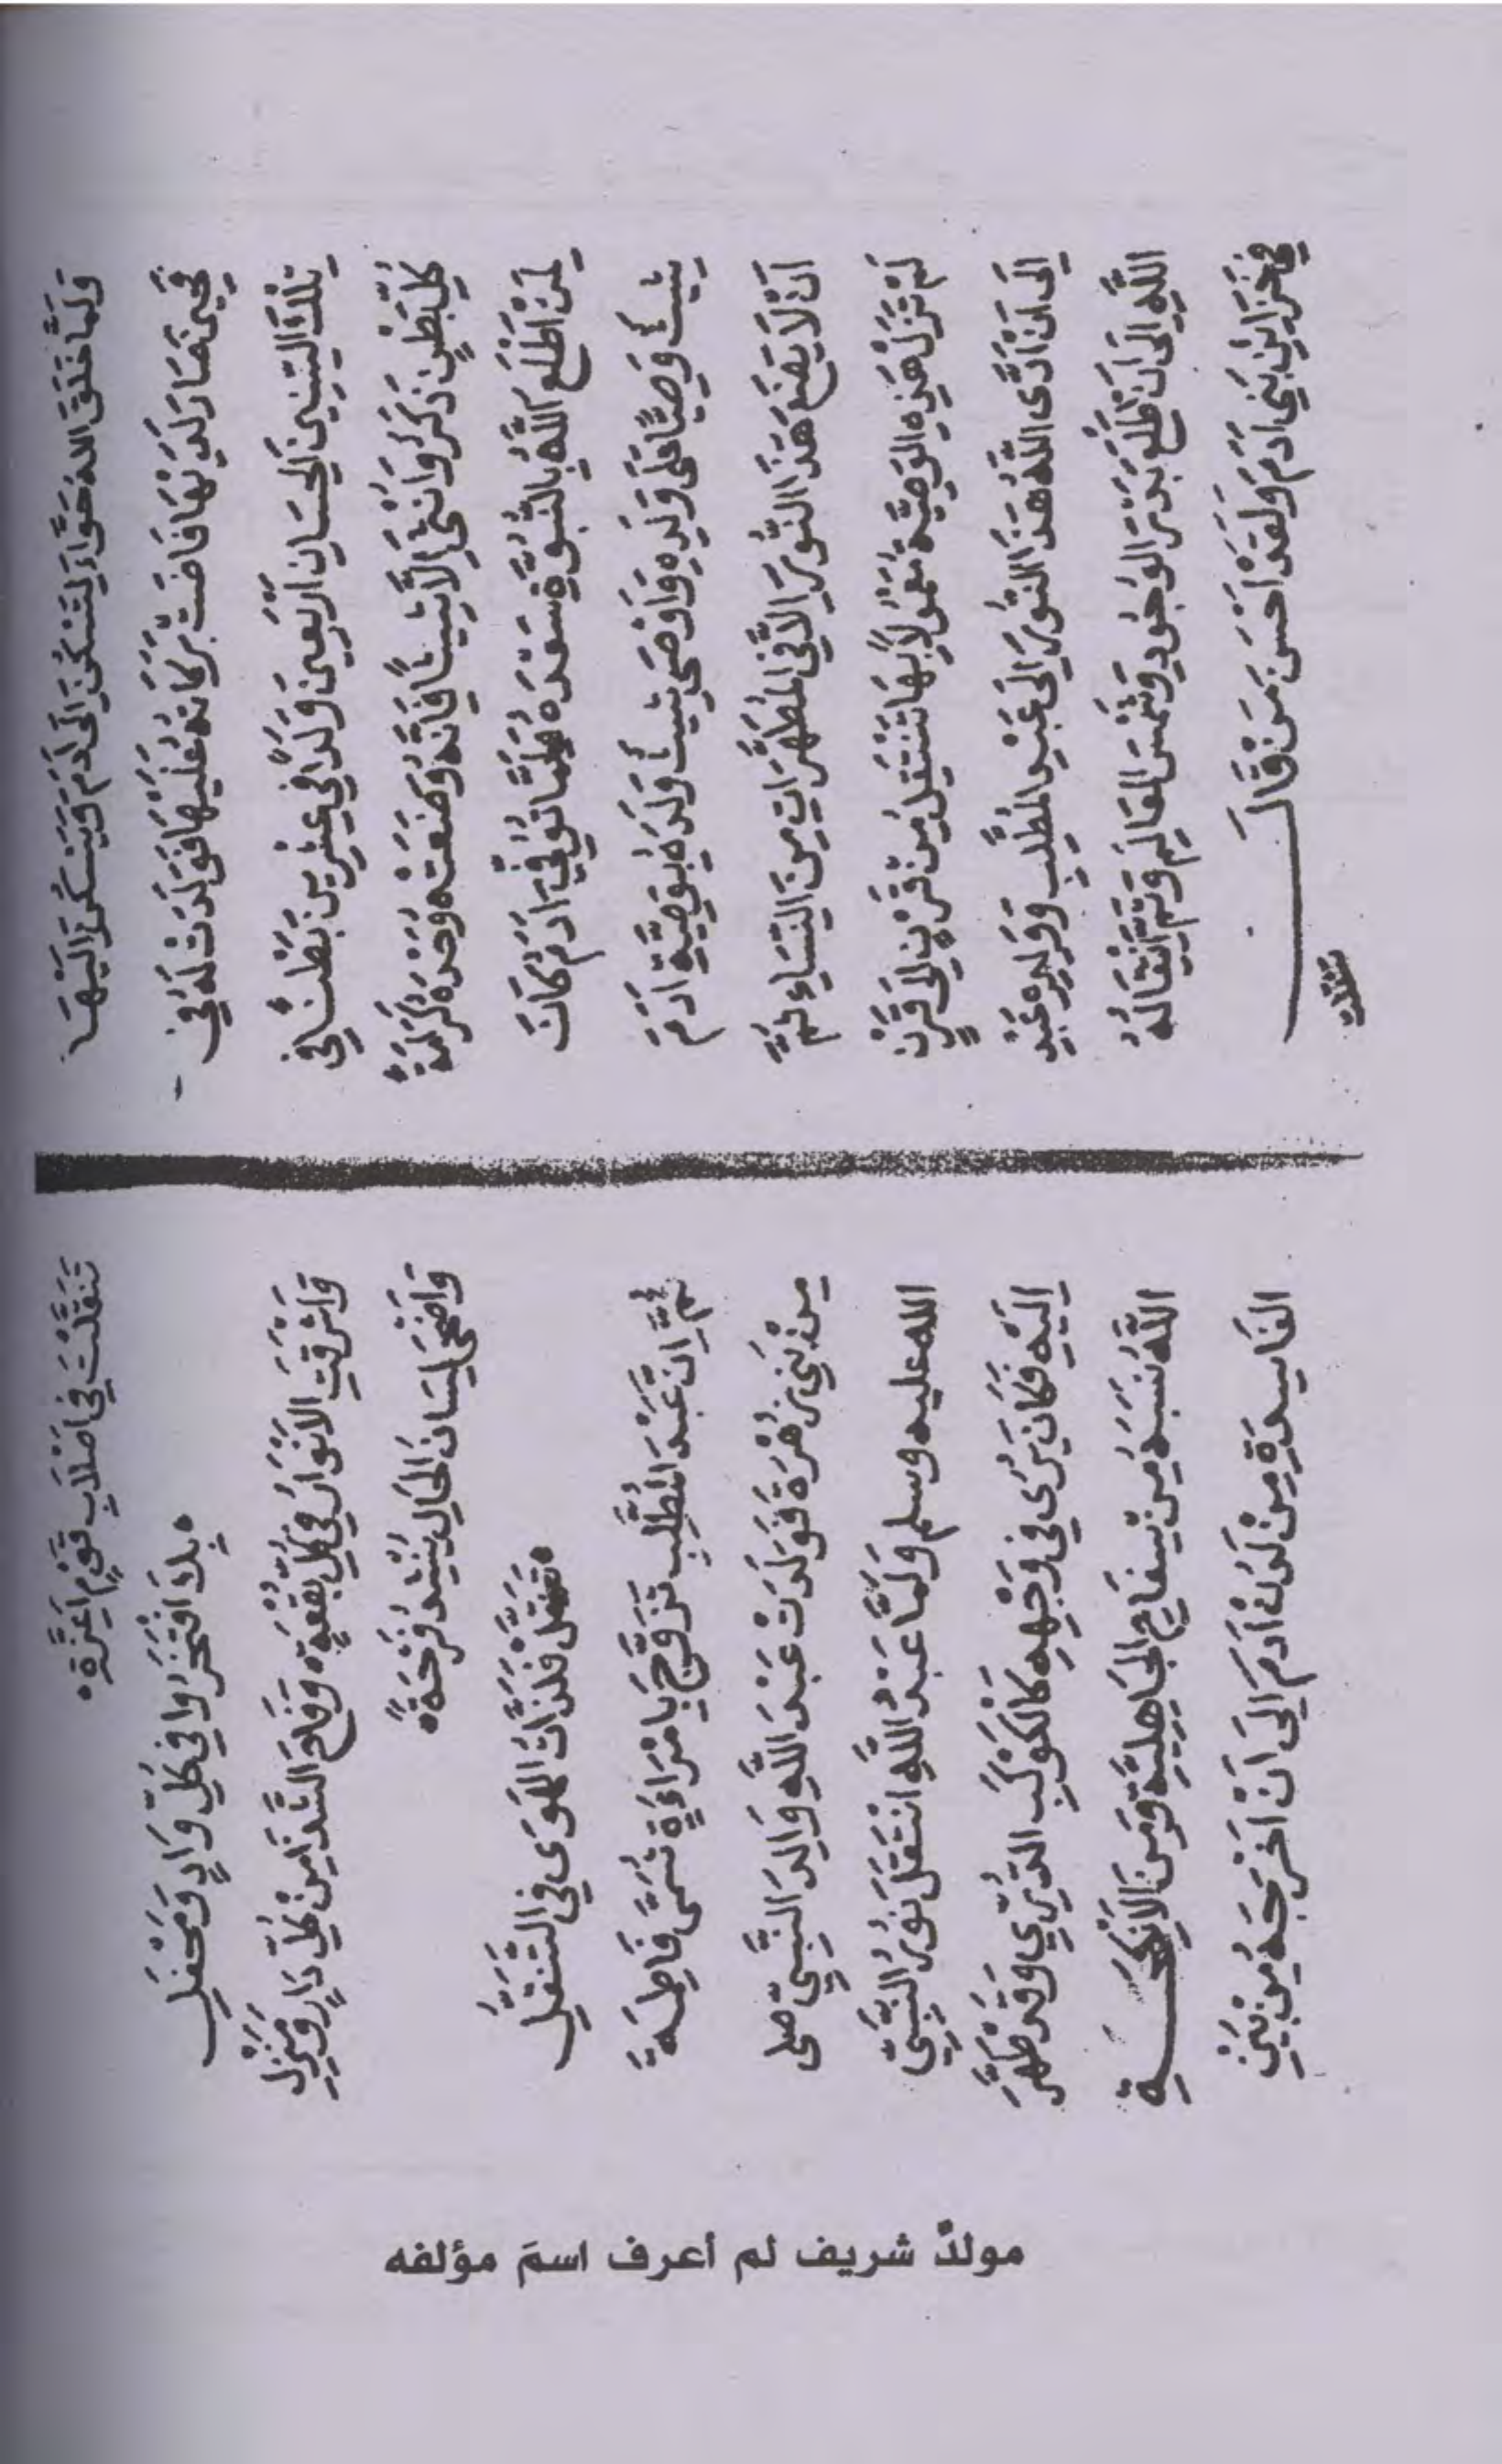 وَلَمَّا خَلَقَ اللهُ حَوَّاءَ لِتَسْكُنَ اِلَى اٰدَمَ وَيَسْكُنَ اِلَيْهَا
فَحِينَ صَارَ لَدَيْهَا فَاضَتْ بَرَكَاتُهُ عَلَيْهَا فَوَلَدَتْ لَهُ فِي
تِلْكَ السِّنِينَ الْحِسَانِ اَرْبَعِينَ وَلَدًا فِي عِشْرِينَ بَطْنًا فِي
كُلِّ بَطْنٍ ذَكَرٌ وَاُنْثَى اِلَّا شِيثًا فَاِنَّهُ وَضَعَتْهُ وَحْدَهُ كَرَامَةً
لِمَنْ اَطْلَعَ اللهُ بِالنُّبُوَّةِ سَعْدَهُ فَلَمَّا تُوُفِّيَ اٰدَمُ كَانَ
شِيثُ وَصِيًّا عَلَى وَلَدِهِ وَاَوْصَى شِيثُ وَلَدَهُ بِوَصِيَّةِ اٰدَمَ
اَنْ لَا يَضَعَ هٰذَا النُّورَ اِلَّا فِي الْمُطَهَّرَاتِ مِنَ النِّسَاءِ ثُمَّ
لَمْ تَزَلْ هٰذِهِ الْوَصِيَّةُ مَعْمُولًا بِهَا تَنْتَقِلُ مِنْ قَرْنٍ اِلَى قَرْنٍ
اِلَى اَنْ اَدَّى اللهُ هٰذَا النُّورَ اِلَى عَبْدِ الْمُطَّلِبِ وَوَلَدِهِ عَبْدِ
اللهِ اِلَى اَنْ طَلَعَ بَدْرُ الْوُجُودِ وَشَمْسُ الْمَعَالِمِ وَتَمَّ انْتِقَالُهُ
فِي خَزَائِنِ بَنِي اٰدَمَ وَلَقَدْ اَحْسَنَ مَنْ قَالَ
تَنَقَّلْتَ
تَنَقَّلْتَ فِي اَصْلَابِ قَوْمٍ اَعِزَّةٍ
بِكَ افْتَخَرُوا فِي كُلِّ وَادٍ وَمَحْفَلِ
وَاَشْرَقَتِ الْاَنْوَارُ فِي كُلِّ بُقْعَةٍ وَفَاحَ الشَّذَا مِنْ كُلِّ دَارٍ وَمَنْزِلِ
وَاَضْحَى لِسَانُ الْحَالِ يُنْشِدُ فَرْحَةً
تَنَقَّلْ فَلَذَّاتُ الْهَوَى فِي التَّنَقُّلِ
ثُمَّ اِنَّ عَبْدَ الْمُطَّلِبِ تَزَوَّجَ بِامْرَاَةٍ تُسَمَّى فَاطِمَةَ
مِنْ بَنِي زُهْرَةَ فَوَلَدَتْ عَبْدَ اللهِ وَالِدَ النَّبِيِّ صلى
الله عليه وسلم وَلَمَّا عَبْدُ اللهِ انْتَقَلَ نُورُ النَّبِيِّ
اِلَيْهِ فَكَانَ يُرَى فِي وَجْهِهِ كَالْكَوْكَبِ الدُّرِّيِّ وَقَدْ طَهَّرَ
اللهُ نَسَبَهُ مِنْ سِفَاحِ الْجَاهِلِيَّةِ وَمِنَ الْاَنْكِحَةِ
الفَاسِدَةِ مِنْ لَدُنْ اٰدَمَ اِلَى اَنْ اَخْرَجَهُ مِنْ بَيْنِ
مولدٌ شريف لم أعرف اسمَ مؤلفه